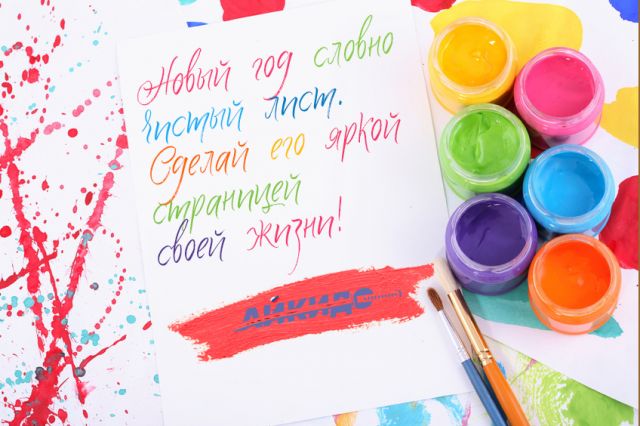 Новый год словно
чистый лист.
Сделай его яркой
страницей
своей жизни!
АЙКИДО